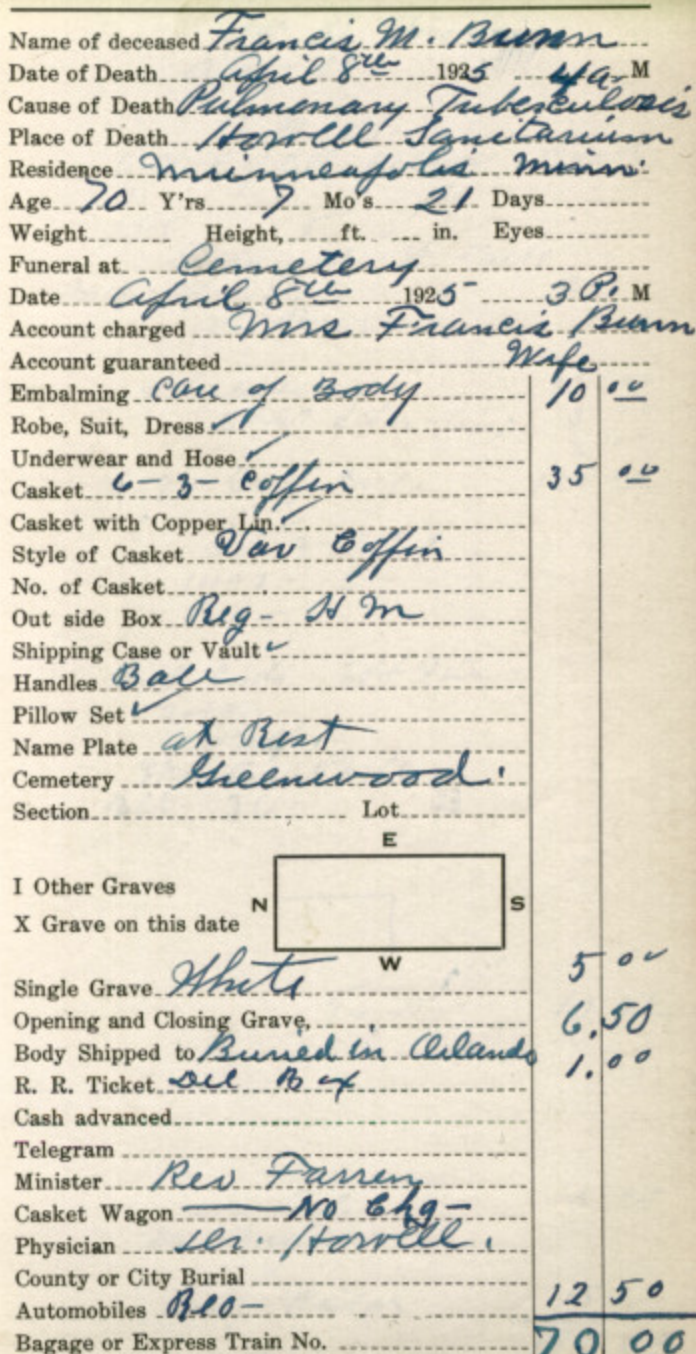 Name of deceased Francis M. Bunn
Date of Death April 8th 1925 4 a M
Cause of Death Pulmonary Tuberculosis
Place of Death Howell Sanitarium
Residence Minneapolis Minn.
Age 70 Y'rs 7 Mo's 21 Days
Weight Height, ft. in. Eyes
Funeral at Cemetery
Date April 8th 1925 3 P. M
Account charged Mrs Francis Bunn
Account guaranteed Wife
Embalming Care of Body 10 00
Robe, Suit, Dress ✓
Underwear and Hose ✓
Casket 6-3- Coffin 35 00
Casket with Copper Lin. ✓
Style of Casket Var Coffin
No. of Casket
Out side Box Reg- H M
Shipping Case or Vault ✓
Handles Bale
Pillow Set ✓
Name Plate at Rest
Cemetery Greenwood.
Section Lot
E
I Other Graves
N S
X Grave on this date
W
Single Grave White 5 00
Opening and Closing Grave, 6.50
Body Shipped to Buried in Orlando 1.00
R. R. Ticket Del Box
Cash advanced
Telegram
Minister Rev Farren
Casket Wagon No Chg-
Physician Dr. Howell.
County or City Burial
Automobiles Reo- 12 50
Bagage or Express Train No. 70 00